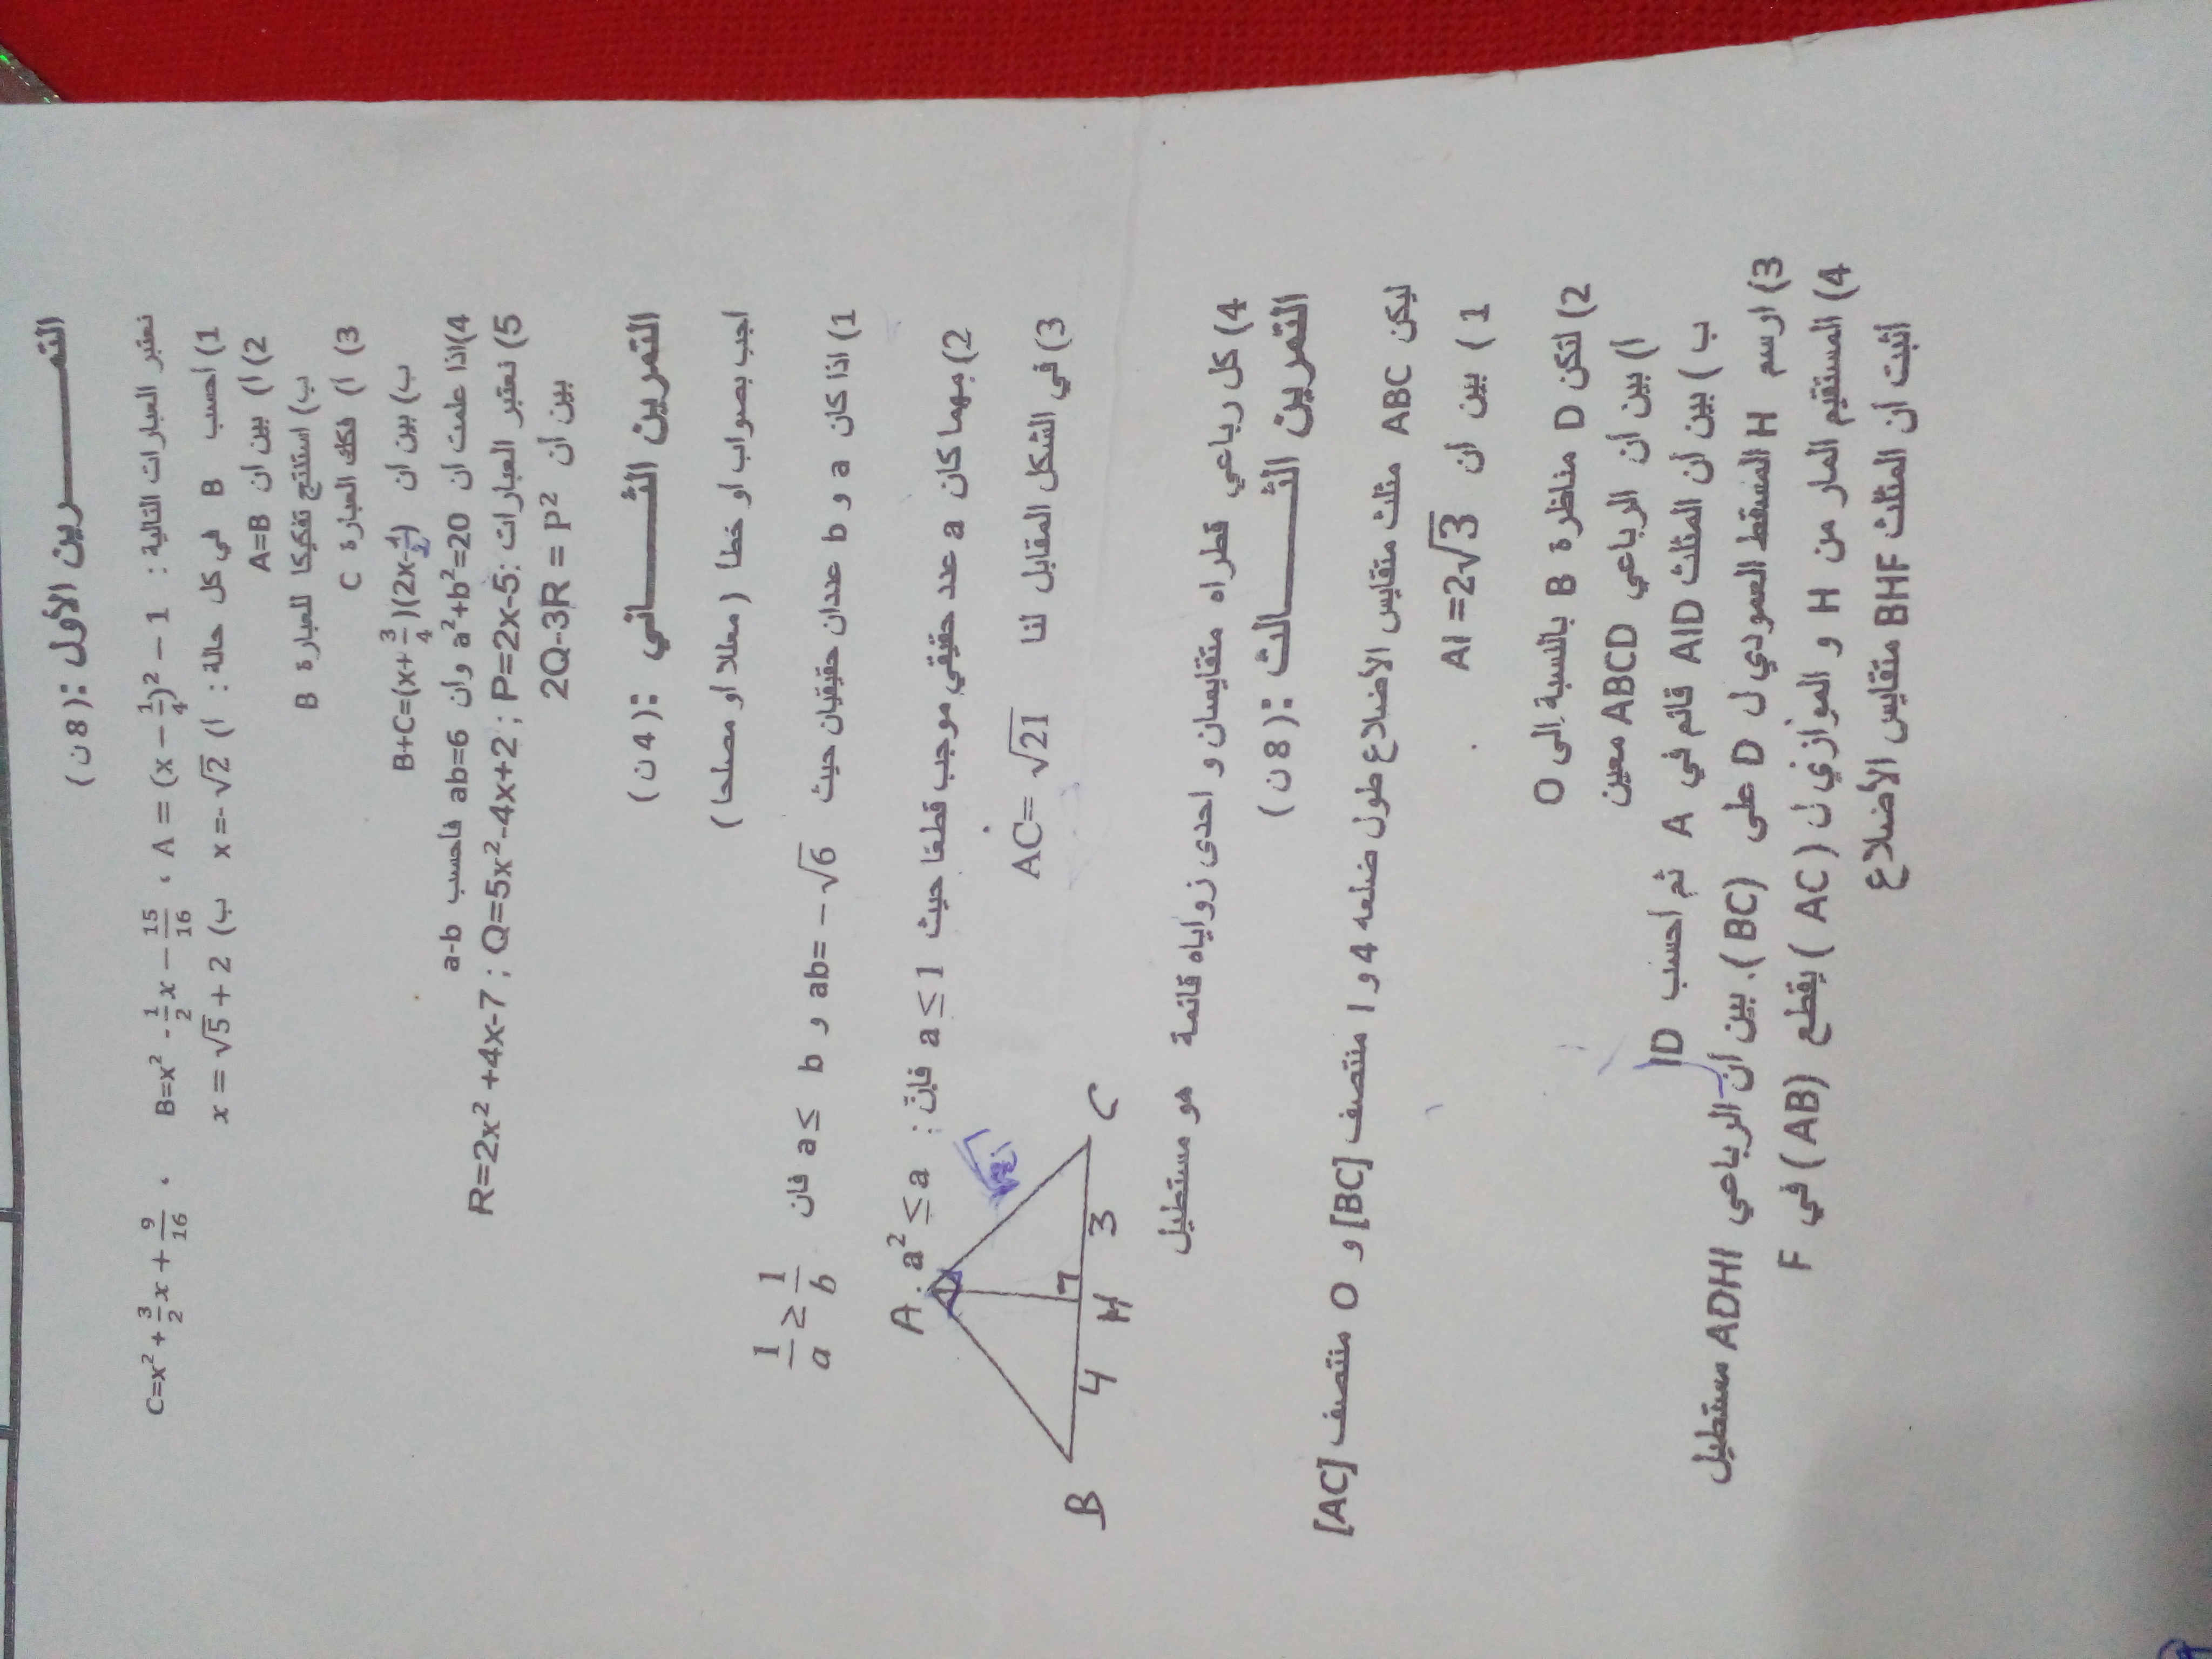 التمـــــــرين الأول : ( 8 ن )
نعتبر العبارات التالية : A = (x − 1/4)² − 1 ، B=x² - 1/2 x − 15/16 . C=x² + 3/2 x + 9/16 .
1) احسب B في كل حالة : ا) x =-√2 ب) x = √5 + 2
2) ا) بين ان A=B
ب) استنتج تفكيكا للعبارة B
3) ا) فكك العبارة C
ب) بين ان B+C=(x+ 3/4)(2x- 1/2)
4)اذا علمت ان a²+b²=20 وان ab=6 فاحسب a-b
5) نعتبر العبارات: P=2x-5 ; Q=5x²-4x+2 ; R=2x²+4x-7
بين أن 2Q-3R = P²
التمرين الثـــــاني : ( 4 ن )
اجب بصواب او خطا ( معللا او مصلحا )
1) اذا كان a و b عددان حقيقيان حيث ab= −√6 و a≤ b فان 1/a ≥ 1/b
2) مهما كان a عدد حقيقي موجب قطعا حيث a ≤ 1 فإن : a² ≤ a .
3) في الشكل المقابل لنا AC= √21
A
B
4
H
3
C
4) كل رباعي قطراه متقايسان و احدى زواياه قائمة هو مستطيل
التمرين الثـــــالث : ( 8 ن )
ليكن ABC مثلث متقايس الأضلاع طول ضلعه 4 و I منتصف [BC] و O منتصف [AC]
1 ) بين ان AI =2√3
2) لتكن D مناظرة B بالنسبة إلى O
أ) بين أن الرباعي ABCD معين
ب ) بين أن المثلث AID قائم في A ثم أحسب ID
3) ارسم H المسقط العمودي ل D على (BC ). بين أن الرباعي ADHI مستطيل
4) المستقيم المار من H و الموازي ل ( AC ) يقطع (AB ) في F
أثبت أن المثلث BHF متقايس الأضلاع